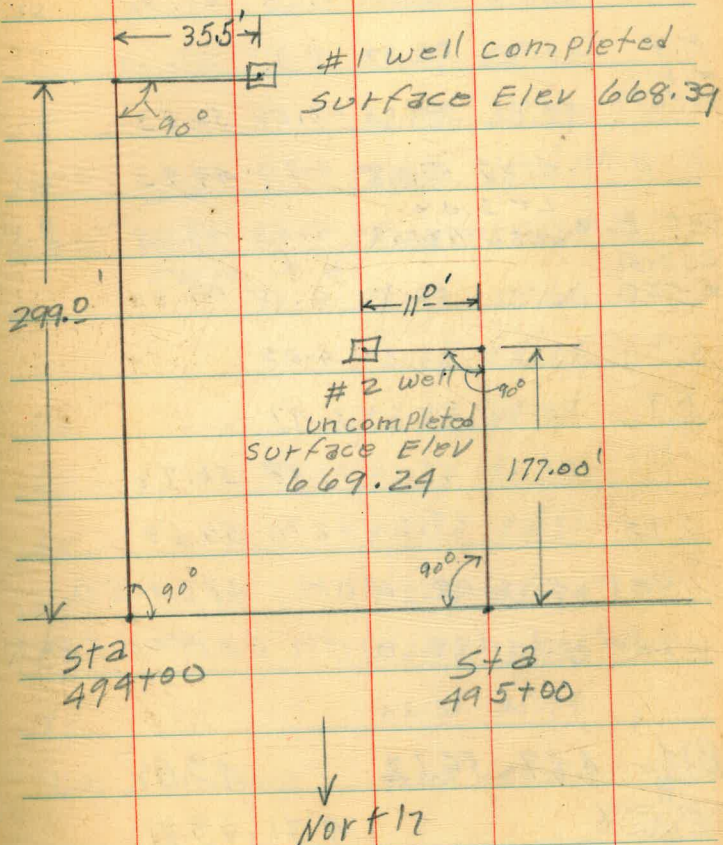 35.5'
#1 well completed
Surface Elev 668.39
90°
299.0'
11.0'
#2 well
uncompleted
Surface Elev
669.24
90°
177.00'
90°
90°
Sta
494+00
Sta
495+00
North